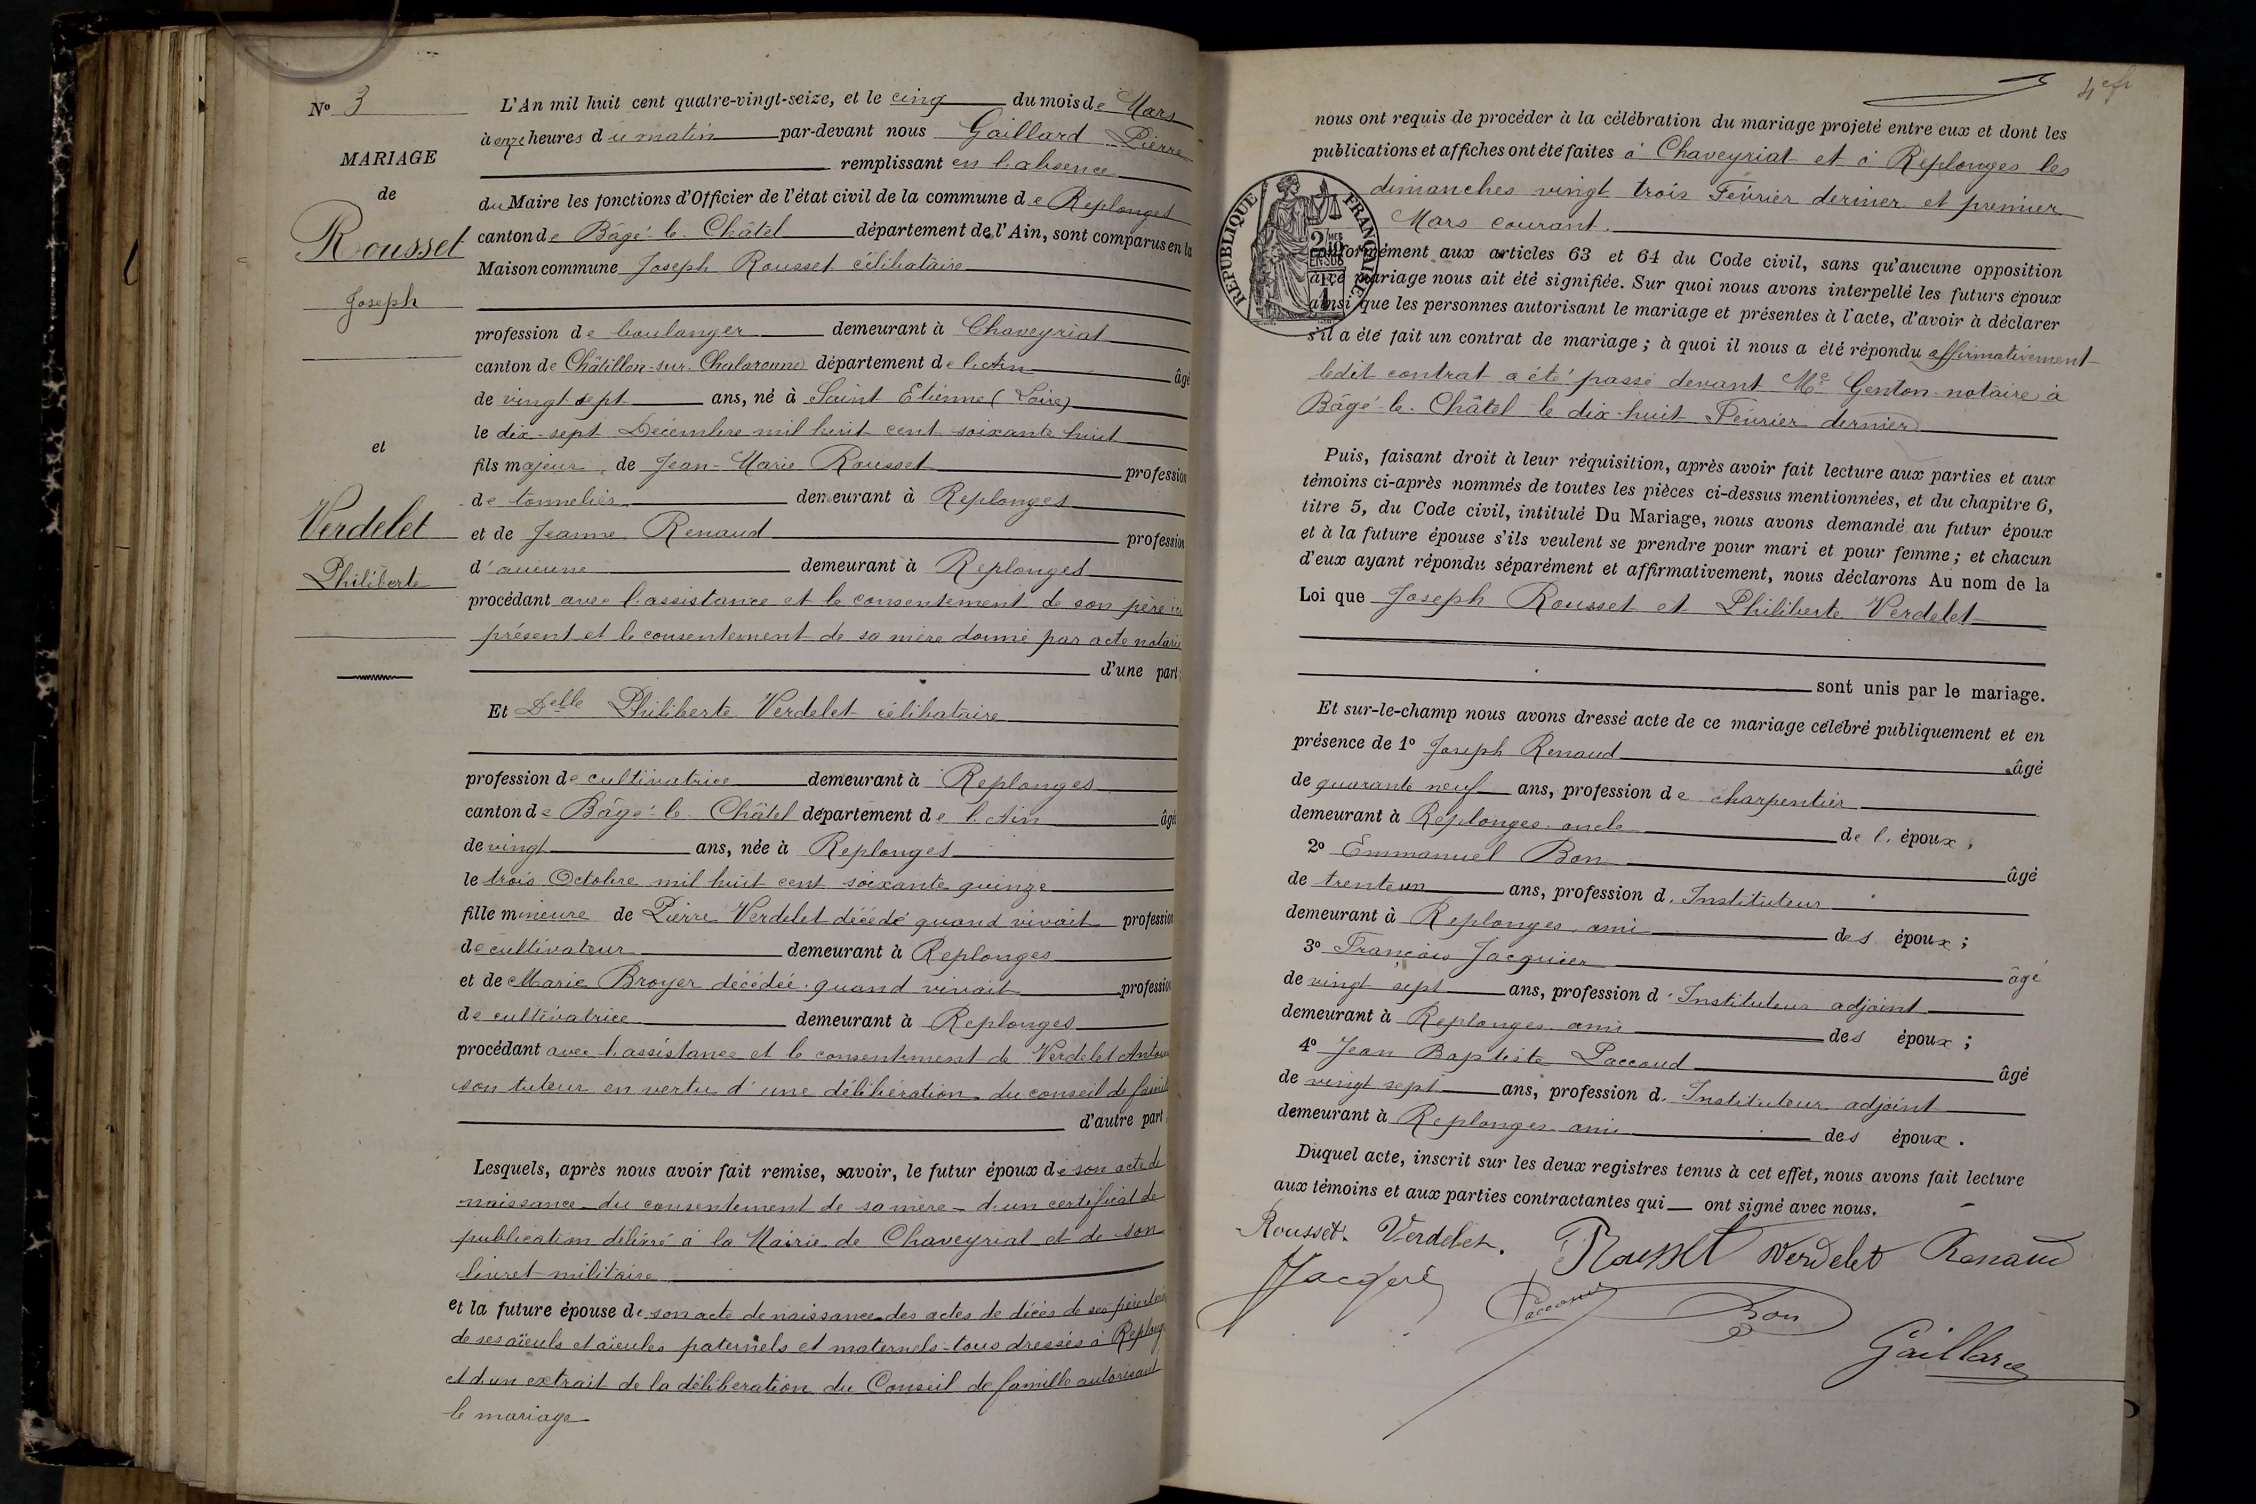 Nº 3
MARIAGE
de
Rousset
Joseph
et
Verdelet
Philiberte
L'An mil huit cent quatre-vingt-seize, et le cinq du mois de Mars
à onze heures du matin par-devant nous Gaillard Pierre
remplissant en l'absence
du Maire les fonctions d'Officier de l'état civil de la commune de Replonges
canton de Bâgé-le-Châtel département de l'Ain, sont comparus en la
Maison commune Joseph Rousset célibataire
profession de boulanger demeurant à Chaveyriat
canton de Châtillon-sur-Chalaronne département de l'Ain âgé
de vingt sept ans, né à Saint Etienne (Loire)
le dix-sept Décembre mil huit cent soixante huit
fils majeur de Jean-Marie Rousset profession
de tonnelier demeurant à Replonges
et de Jeanne Renaud profession
d'aucune demeurant à Replonges
procédant avec l'assistance et le consentement de son père ici
présent et le consentement de sa mère donné par acte notarié
d'une part;
Et Delle Philiberte Verdelet célibataire
profession de cultivatrice demeurant à Replonges
canton de Bâgé-le-Châtel département de l'Ain âgé
de vingt ans, née à Replonges
le trois Octobre mil huit cent soixante quinze
fille mineure de Pierre Verdelet décédé quand vivait profession
de cultivateur demeurant à Replonges
et de Marie Broyer décédée quand vivait profession
de cultivatrice demeurant à Replonges
procédant avec l'assistance et le consentement de Verdelet Antoine
son tuteur en vertu d'une délibération du conseil de famille
d'autre part.
Lesquels, après nous avoir fait remise, savoir, le futur époux de son acte de
naissance - du consentement de sa mère - d'un certificat de
publication délivré à la Mairie de Chaveyriat et de son
livret militaire
et la future épouse de son acte de naissance des actes de décès de ses père et mère
de ses aïeuls et aïeules paternels et maternels - tous dressés à Replonges
et d'un extrait de la délibération du Conseil de famille autorisant
le mariage
nous ont requis de procéder à la célébration du mariage projeté entre eux et dont les
publications et affiches ont été faites à Chaveyriat et à Replonges les
dimanches vingt trois Février dernier et premier
Mars courant.
RÉPUBLIQUE FRANÇAISE
conformément aux articles 63 et 64 du Code civil, sans qu'aucune opposition
à ce mariage nous ait été signifiée. Sur quoi nous avons interpellé les futurs époux
ainsi que les personnes autorisant le mariage et présentes à l'acte, d'avoir à déclarer
s'il a été fait un contrat de mariage; à quoi il nous a été répondu affirmativement
ledit contrat a été passé devant Me Genton notaire à
Bâgé-le-Châtel le dix-huit Février dernier
Puis, faisant droit à leur réquisition, après avoir fait lecture aux parties et aux
témoins ci-après nommés de toutes les pièces ci-dessus mentionnées, et du chapitre 6,
titre 5, du Code civil, intitulé Du Mariage, nous avons demandé au futur époux
et à la future épouse s'ils veulent se prendre pour mari et pour femme; et chacun
d'eux ayant répondu séparément et affirmativement, nous déclarons Au nom de la
Loi que Joseph Rousset et Philiberte Verdelet
sont unis par le mariage.
Et sur-le-champ nous avons dressé acte de ce mariage célébré publiquement et en
présence de 1º Joseph Renaud âgé
de quarante neuf ans, profession de charpentier
demeurant à Replonges oncle de l'époux;
2º Emmanuel Bon âgé
de trente un ans, profession d'Instituteur
demeurant à Replonges ami des époux;
3º François Jacquier âgé
de vingt sept ans, profession d'Instituteur adjoint
demeurant à Replonges ami des époux;
4º Jean Baptiste Paccoud âgé
de vingt sept ans, profession d'Instituteur adjoint
demeurant à Replonges ami des époux.
Duquel acte, inscrit sur les deux registres tenus à cet effet, nous avons fait lecture
aux témoins et aux parties contractantes qui ont signé avec nous.
Rousset. Verdelet. Rousset Verdelet Renaud
Paccoud Bon
Gaillard